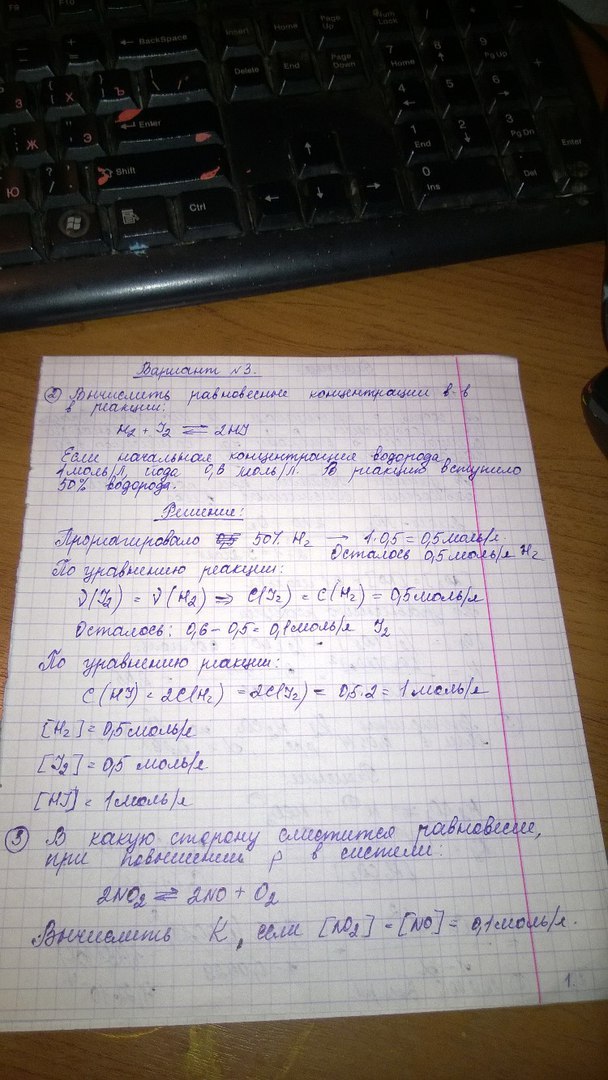 F9
F10
Insert
Home
Page Up
Num Lock
← BackSpace
Delete
End
Page Down
7 Home
8 ↑
9 Pg Up
+
{ [ Х
} ] Ъ
| \ /
4 ←
5
6 →
З
← Enter
Ж
" ' Э
1 End
2 ↓
3 Pg Dn
Enter
Shift
↑
0 Ins
. Del
Ю
? /
Ctrl
←
↓
→
Вариант №3.
② Вычислить равновесные концентрации в-в
в реакции:
H₂ + J₂ ⇌ 2HJ
Если начальная концентрация водорода
1 моль/л, йода 0,6 моль/л. В реакцию вступило
50% водорода.
Решение:
Прореагировало 0,5 50% H₂ → 1·0,5 = 0,5 моль/л
Осталось 0,5 моль/л H₂
По уравнению реакции:
ν(J₂) = ν(H₂) ⇒ C(J₂) = C(H₂) = 0,5 моль/л
Осталось: 0,6 - 0,5 = 0,1 моль/л J₂
По уравнению реакции:
C(HJ) = 2C(H₂) = 2C(J₂) = 0,5·2 = 1 моль/л
[H₂] = 0,5 моль/л
[J₂] = 0,5 моль/л
[HJ] = 1 моль/л
③ В какую сторону сместится равновесие,
при повышении p в системе:
2NO₂ ⇌ 2NO + O₂
Вычислить K, если [NO₂] = [NO] = 0,1 моль/л.
1.